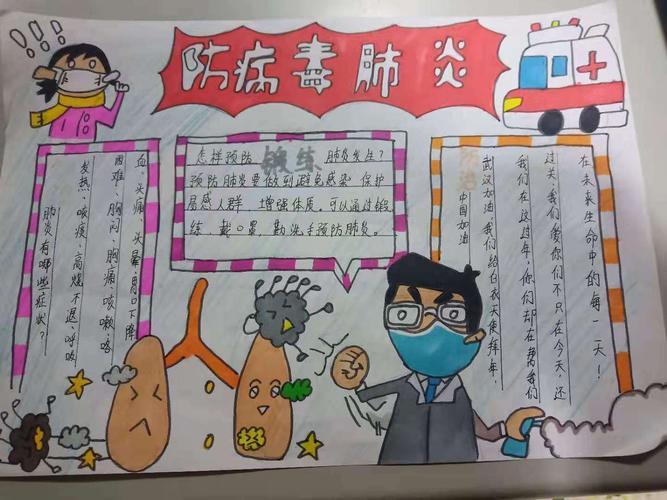 !!!
防病毒肺炎
肺炎有哪些症状？
发热、咳痰、高烧不退、呼吸
困难、胸闷、胸痛、咳嗽、咯
血、头痛、头晕、胃口下降
怎样预防 锻练 肺炎发生？
预防肺炎要做到避免感染 保护
易感人群，增强体质。可以通过锻
练、戴口罩、勤洗手预防肺炎。
防治
中国加油
武汉加油，我们给白衣天使拜年，
我们在这过年，你们却在帮我们
过关、我们爱你们不只在今天、还
在未来生命中的每一天！